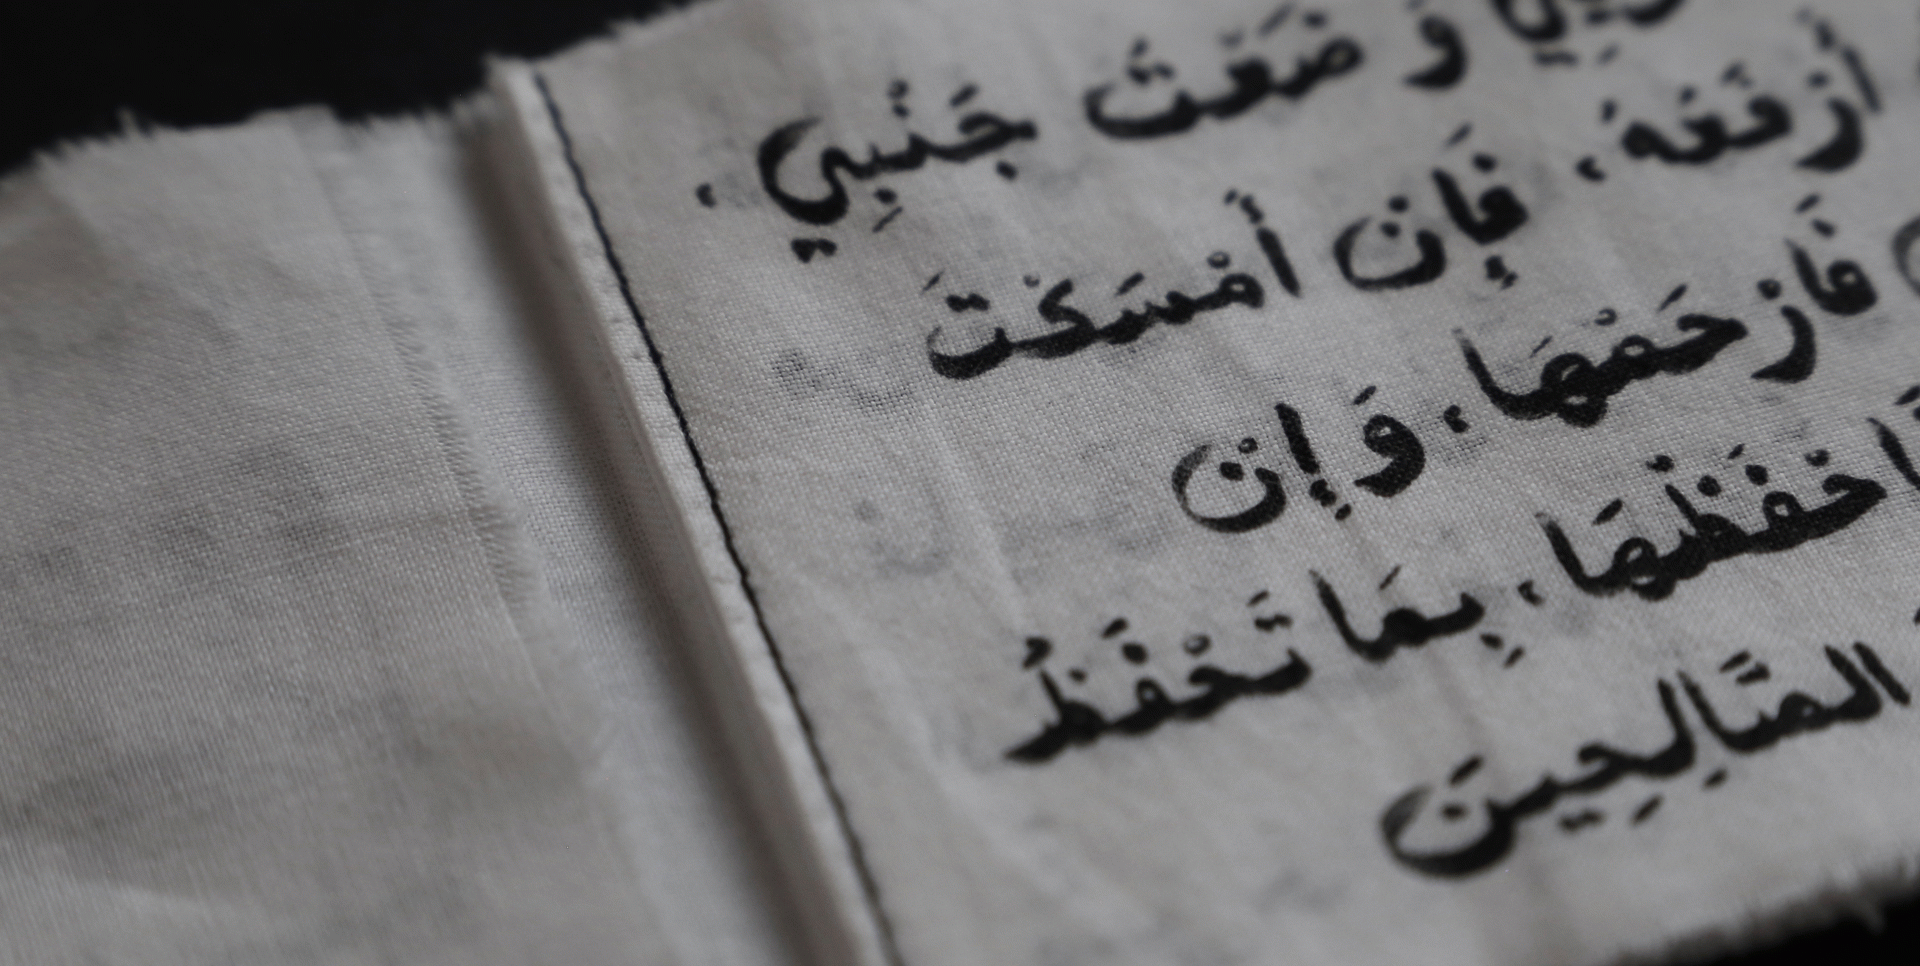 وَضَعْتُ جَنْبِي،
أَرْفَعُهُ، فَإِن أَمْسَكْتَ
فَارْحَمْهَا، وَإِنْ
احْفَظْهَا، بِمَا تَحْفَظُ
الصَّالِحِينَ